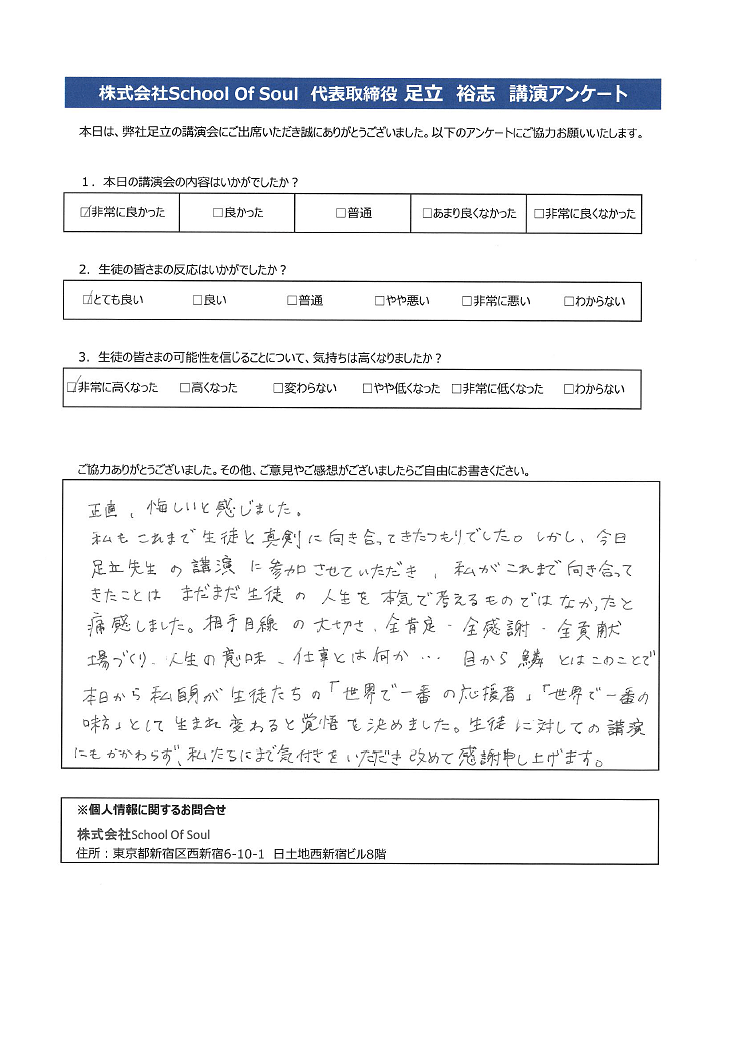 株式会社School Of Soul 代表取締役 足立 裕志 講演アンケート
本日は、弊社足立の講演会にご出席いただき誠にありがとうございました。以下のアンケートにご協力お願いいたします。
1．本日の講演会の内容はいかがでしたか？
☑非常に良かった □良かった □普通 □あまり良くなかった □非常に良くなかった
2．生徒の皆さまの反応はいかがでしたか？
☑とても良い □良い □普通 □やや悪い □非常に悪い □わからない
3．生徒の皆さまの可能性を信じることについて、気持ちは高くなりましたか？
☑非常に高くなった □高くなった □変わらない □やや低くなった □非常に低くなった □わからない
ご協力ありがとうございました。その他、ご意見やご感想がございましたらご自由にお書きください。
正直、悔しいと感じました。
私もこれまで生徒と真剣に向き合ってきたつもりでした。しかし、今日
足立先生の講演に参加させていただき、私がこれまで向き合って
きたことはまだまだ生徒の人生を本気で考えるものではなかったと
痛感しました。相手目線の大切さ、全肯定・全感謝・全貢献
場づくり、人生の意味、仕事とは何か… 目から鱗とはこのことで
本日から私自身が生徒たちの「世界で一番の応援者」「世界で一番の
味方」として生まれ変わると覚悟を決めました。生徒に対しての講演
にもかかわらず、私たちにまで気付きをいただき改めて感謝申し上げます。
※個人情報に関するお問合せ
株式会社School Of Soul
住所：東京都新宿区西新宿6-10-1 日土地西新宿ビル8階